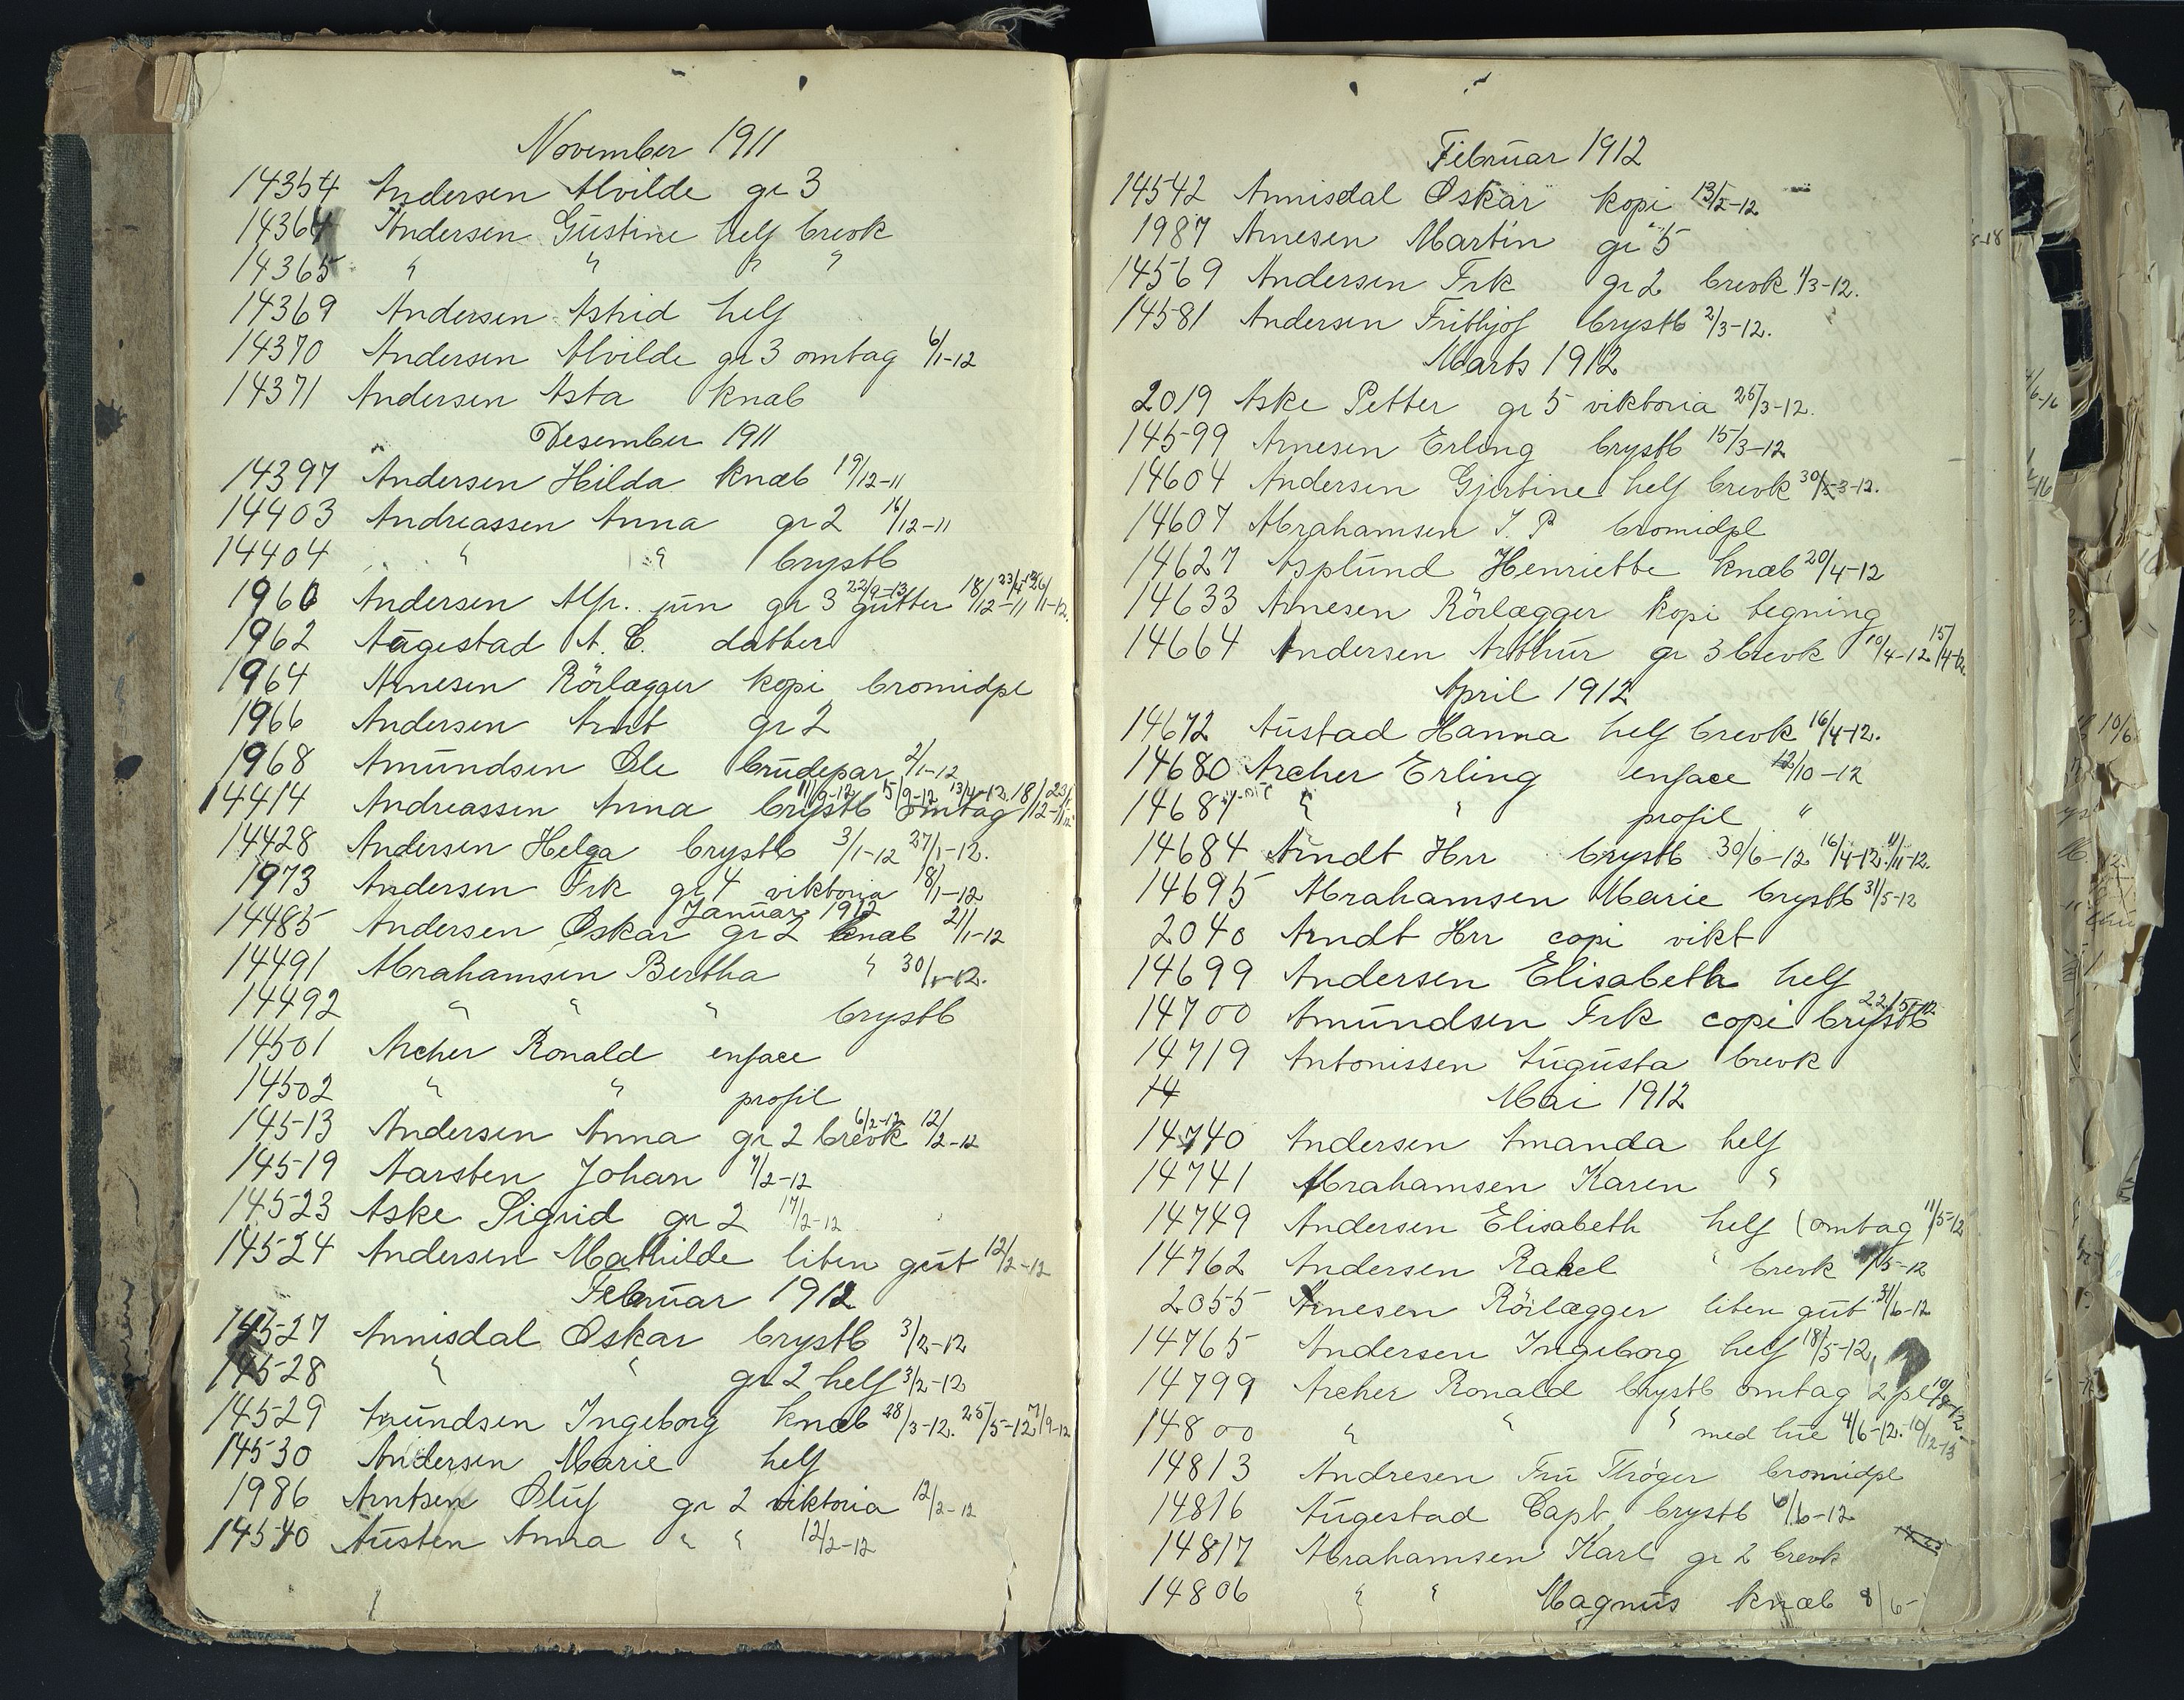 November 1911
14354 Andersen Alvilde gr 3
14364 Andersen Gustine helf brevk
14365 " " " "
14369 Andersen Astrid helf
14370 Andersen Alvilde gr 3 omtag 6/1-12
14371 Andersen Asta knæb
Desember 1911
14397 Andersen Hilda knæb 19/12-11
14403 Andreassen Anna gr 2 16/12-11
14404 " " brystb
1960 Andersen Alfr. jun gr 3 gutter 22/9-13 18/12-11
1962 Aagestad A. C. datter
1964 Arnesen Rörlægger kopi bromidpl
1966 Andersen Arnt gr 2
1968 Amundsen Ole brudepar 2/1-12
14414 Andreassen Anna brystb omtag 11/9-12 15/9-12 13/4-12 18/12-11
14428 Andersen Helga brystb 3/1-12 27/1-12.
1973 Andersen Frk gr 4 viktoria 18/1-12
Januar 1912
14485 Andersen Oskar gr 2 knæb 21/1-12
14491 Abrahamsen Bertha " 30/1-12.
14492 " " " brystb
14501 Archer Ronald enface
14502 " " profil
14513 Andersen Anna gr 2 brevk 6/2-12 12/2-12
14519 Aarsten Johan 7/2-12
14523 Aske Sigrid gr 2 17/2-12
14524 Andersen Mathilde liten gut 12/2-12
Februar 1912
14527 Annisdal Oskar brystb 3/2-12
14528 " " gr 2 helf 3/2-12
14529 Amundsen Ingeborg knæb 28/3-12. 25/5-12 7/9-12
14530 Andersen Marie helf
1986 Arntsen Oluf gr 2 viktoria 12/2-12
14540 Austen Anna " " 12/2-12
Februar 1912
14542 Annisdal Oskar kopi 13/2-12
1987 Arnesen Martin gr 5
14569 Andersen Frk gr 2 brevk 1/3-12.
14581 Andersen Frithjof brystb 2/3-12.
Marts 1912
2019 Aske Petter gr 5 viktoria 25/3-12.
14599 Arnesen Erling brystb 15/3-12
14604 Andersen Gjertine helf brevk 30/3-12.
14607 Abrahamsen J. P bromidpl
14627 Asplund Henriette knæb 20/4-12
14633 Arnesen Rörlægger kopi tegning
14664 Andersen Arthur gr 3 brevk 10/4-12 15/4-12
April 1912
14672 Austad Hanna helf brevk 16/4-12.
14680 Archer Erling enface 12/10-12
14681 " " profil "
14684 Arndt Hrr brystb 30/6-12 16/4-12. 11/11-12.
14695 Abrahamsen Marie brystb 31/5-12
2040 Arndt Hrr copi vikt
14699 Andersen Elisabeth helf
14700 Amundsen Frk copi brystb 22/5-12
14719 Antonissen Augusta brevk
14
Mai 1912
14740 Andersen Amanda helf
14741 Abrahamsen Karen "
14749 Andersen Elisabeth helf (omtag) 11/5-12
14762 Andersen Rakel " brevk /5-12
2055 Arnesen Rörlægger liten gut 31/6-12
14765 Andersen Ingeborg helf 18/5-12
14799 Archer Ronald brystb omtag 2 pl
14800 " " " med lue 4/6-12. 10/12-13
14813 Andresen Fru Thröger bromidpl
14816 Augestad Capt brystb 6/6-12
14817 Abrahamsen Karl gr 2 brevk
14806 " " Magnus knæb 8/6-